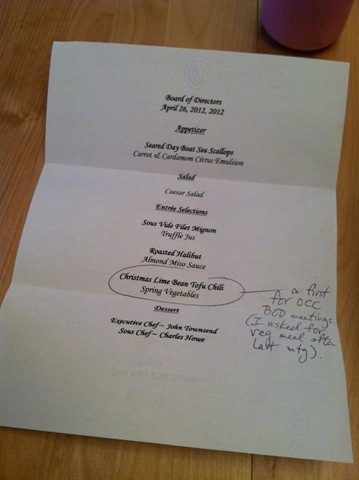 Board of Directors
April 26, 2012, 2012
Appetizer
Seared Day Boat Sea Scallops
Carrot & Cardamom Citrus Emulsion
Salad
Caesar Salad
Entrée Selections
Sous Vide Filet Mignon
Truffle Jus
Roasted Halibut
Almond Miso Sauce
Christmas Lime Bean Tofu Chili
Spring Vegetables
Dessert
Executive Chef ~ John Townsend
Sous Chef ~ Charles Howe
a first
for OCC
BOD meetings
(I asked for
veg meal after
last mtg).